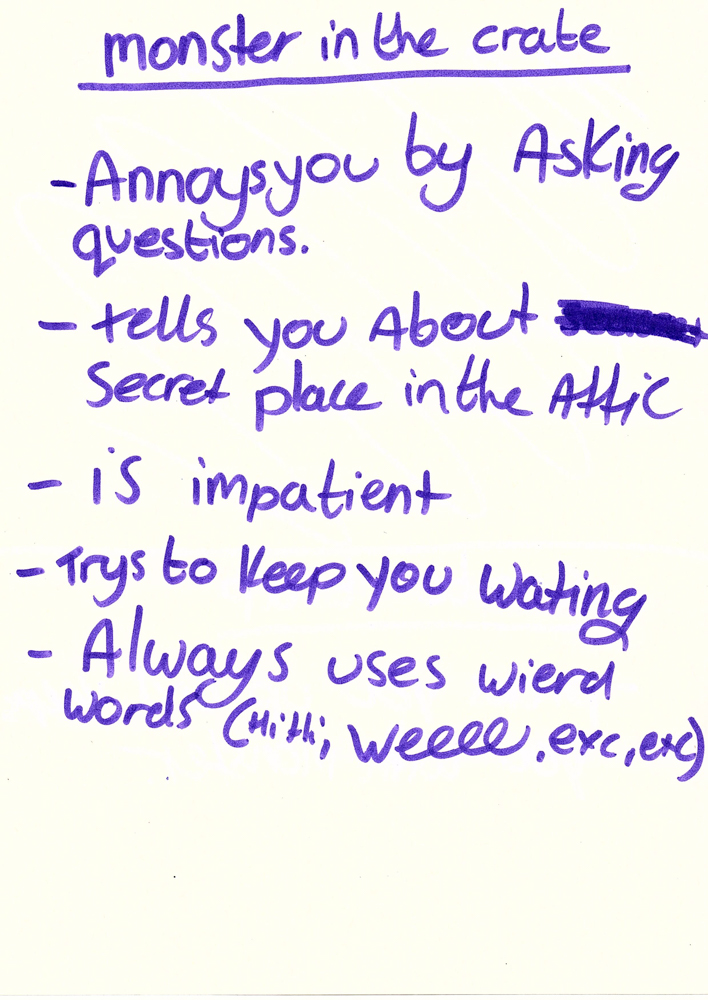 monster in the crate
- Annoys you by Asking
questions.
- tells you About
Secret place in the Attic
- is impatient
- Trys to keep you wating
- Always uses wierd
words (Hihi; weeell, exc, exc)